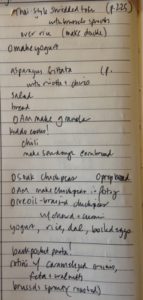 Thai style shredded tofu (p.225)
with brussels sprouts
over rice (make double)
O make yogurt
asparagus frittata (p.
with ricotta + chorizo
salad
bread
O AM make granola
kiddo comes!
chili
make sourdough cornbread
O soak chickpeas O prep bread
O AM make chickpeas in
O olive oil-braised chickpeas
w/ chard + cumin
yogurt, rice, dal, boiled eggs
pasta!
w/ caramelized onions,
feta + walnuts
brussels sprouts (roasted)